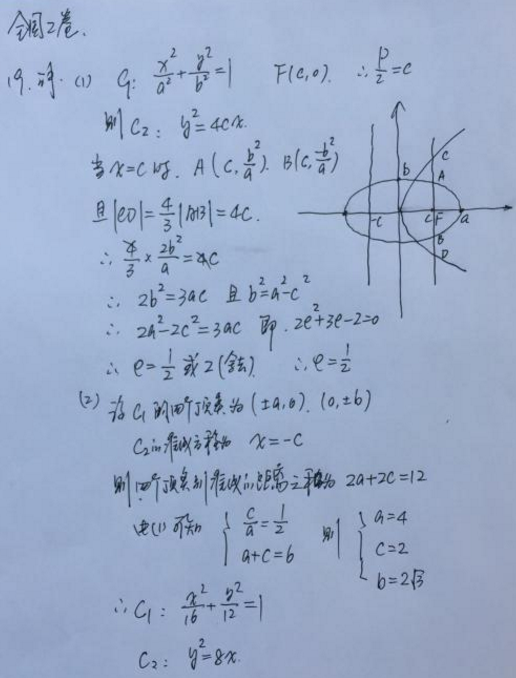 全国2卷.
19. 解. (1) C₁: x²/a² + y²/b² = 1 F(c,0). ∴ p/2 = c
则 C₂: y² = 4cx.
当 x=c 时. A(c, b²/a). B(c, b²/a)
且 |CD| = 4/3 |AB| = 4c.
∴ 4/3 × 2b²/a = 4c
∴ 2b² = 3ac 且 b² = a² - c²
∴ 2a² - 2c² = 3ac 即. 2e² + 3e - 2 = 0
∴ e = 1/2 或 2 (舍去). ∴ e = 1/2
b
C
A
-c
c
F
a
B
D
(2) 设 C₁ 的四个顶点为 (±a,0). (0,±b)
C₂的准线方程为 x = -c
则四个顶点到准线的距离之和为 2a+2c=12
由(1)可知 { c/a = 1/2
a+c=6 则 { a=4
c=2
b=2√3
∴ C₁: x²/16 + y²/12 = 1
C₂: y² = 8x.